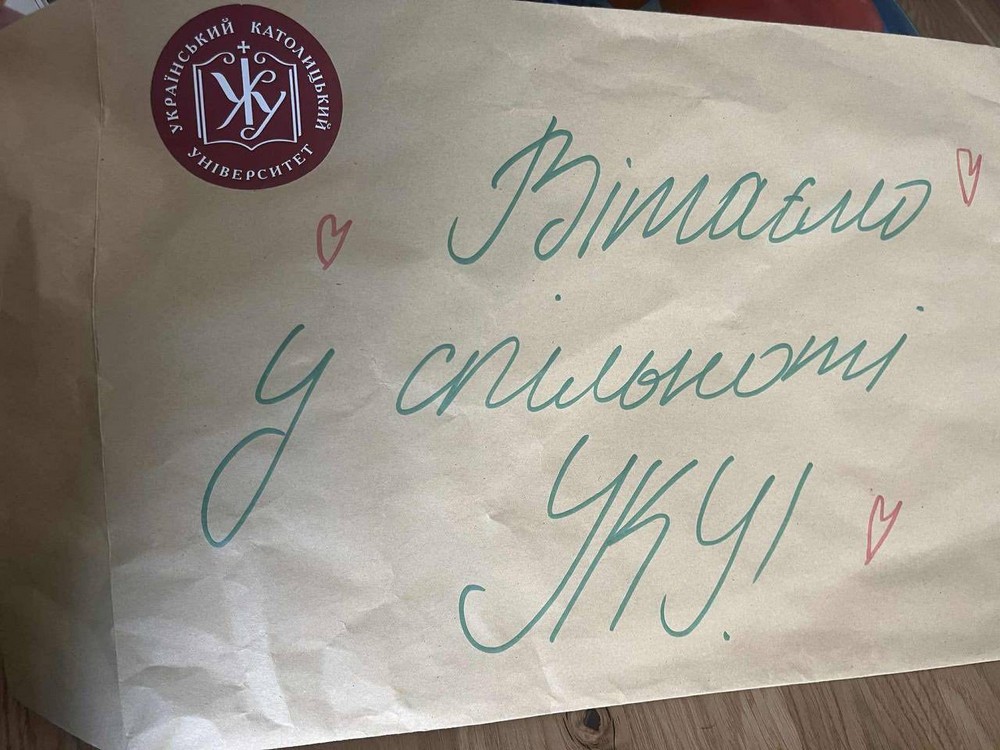 УКРАЇНСЬКИЙ КАТОЛИЦЬКИЙ
УНІВЕРСИТЕТ
УКУ
Вітаємо
у спільноті
УКУ!